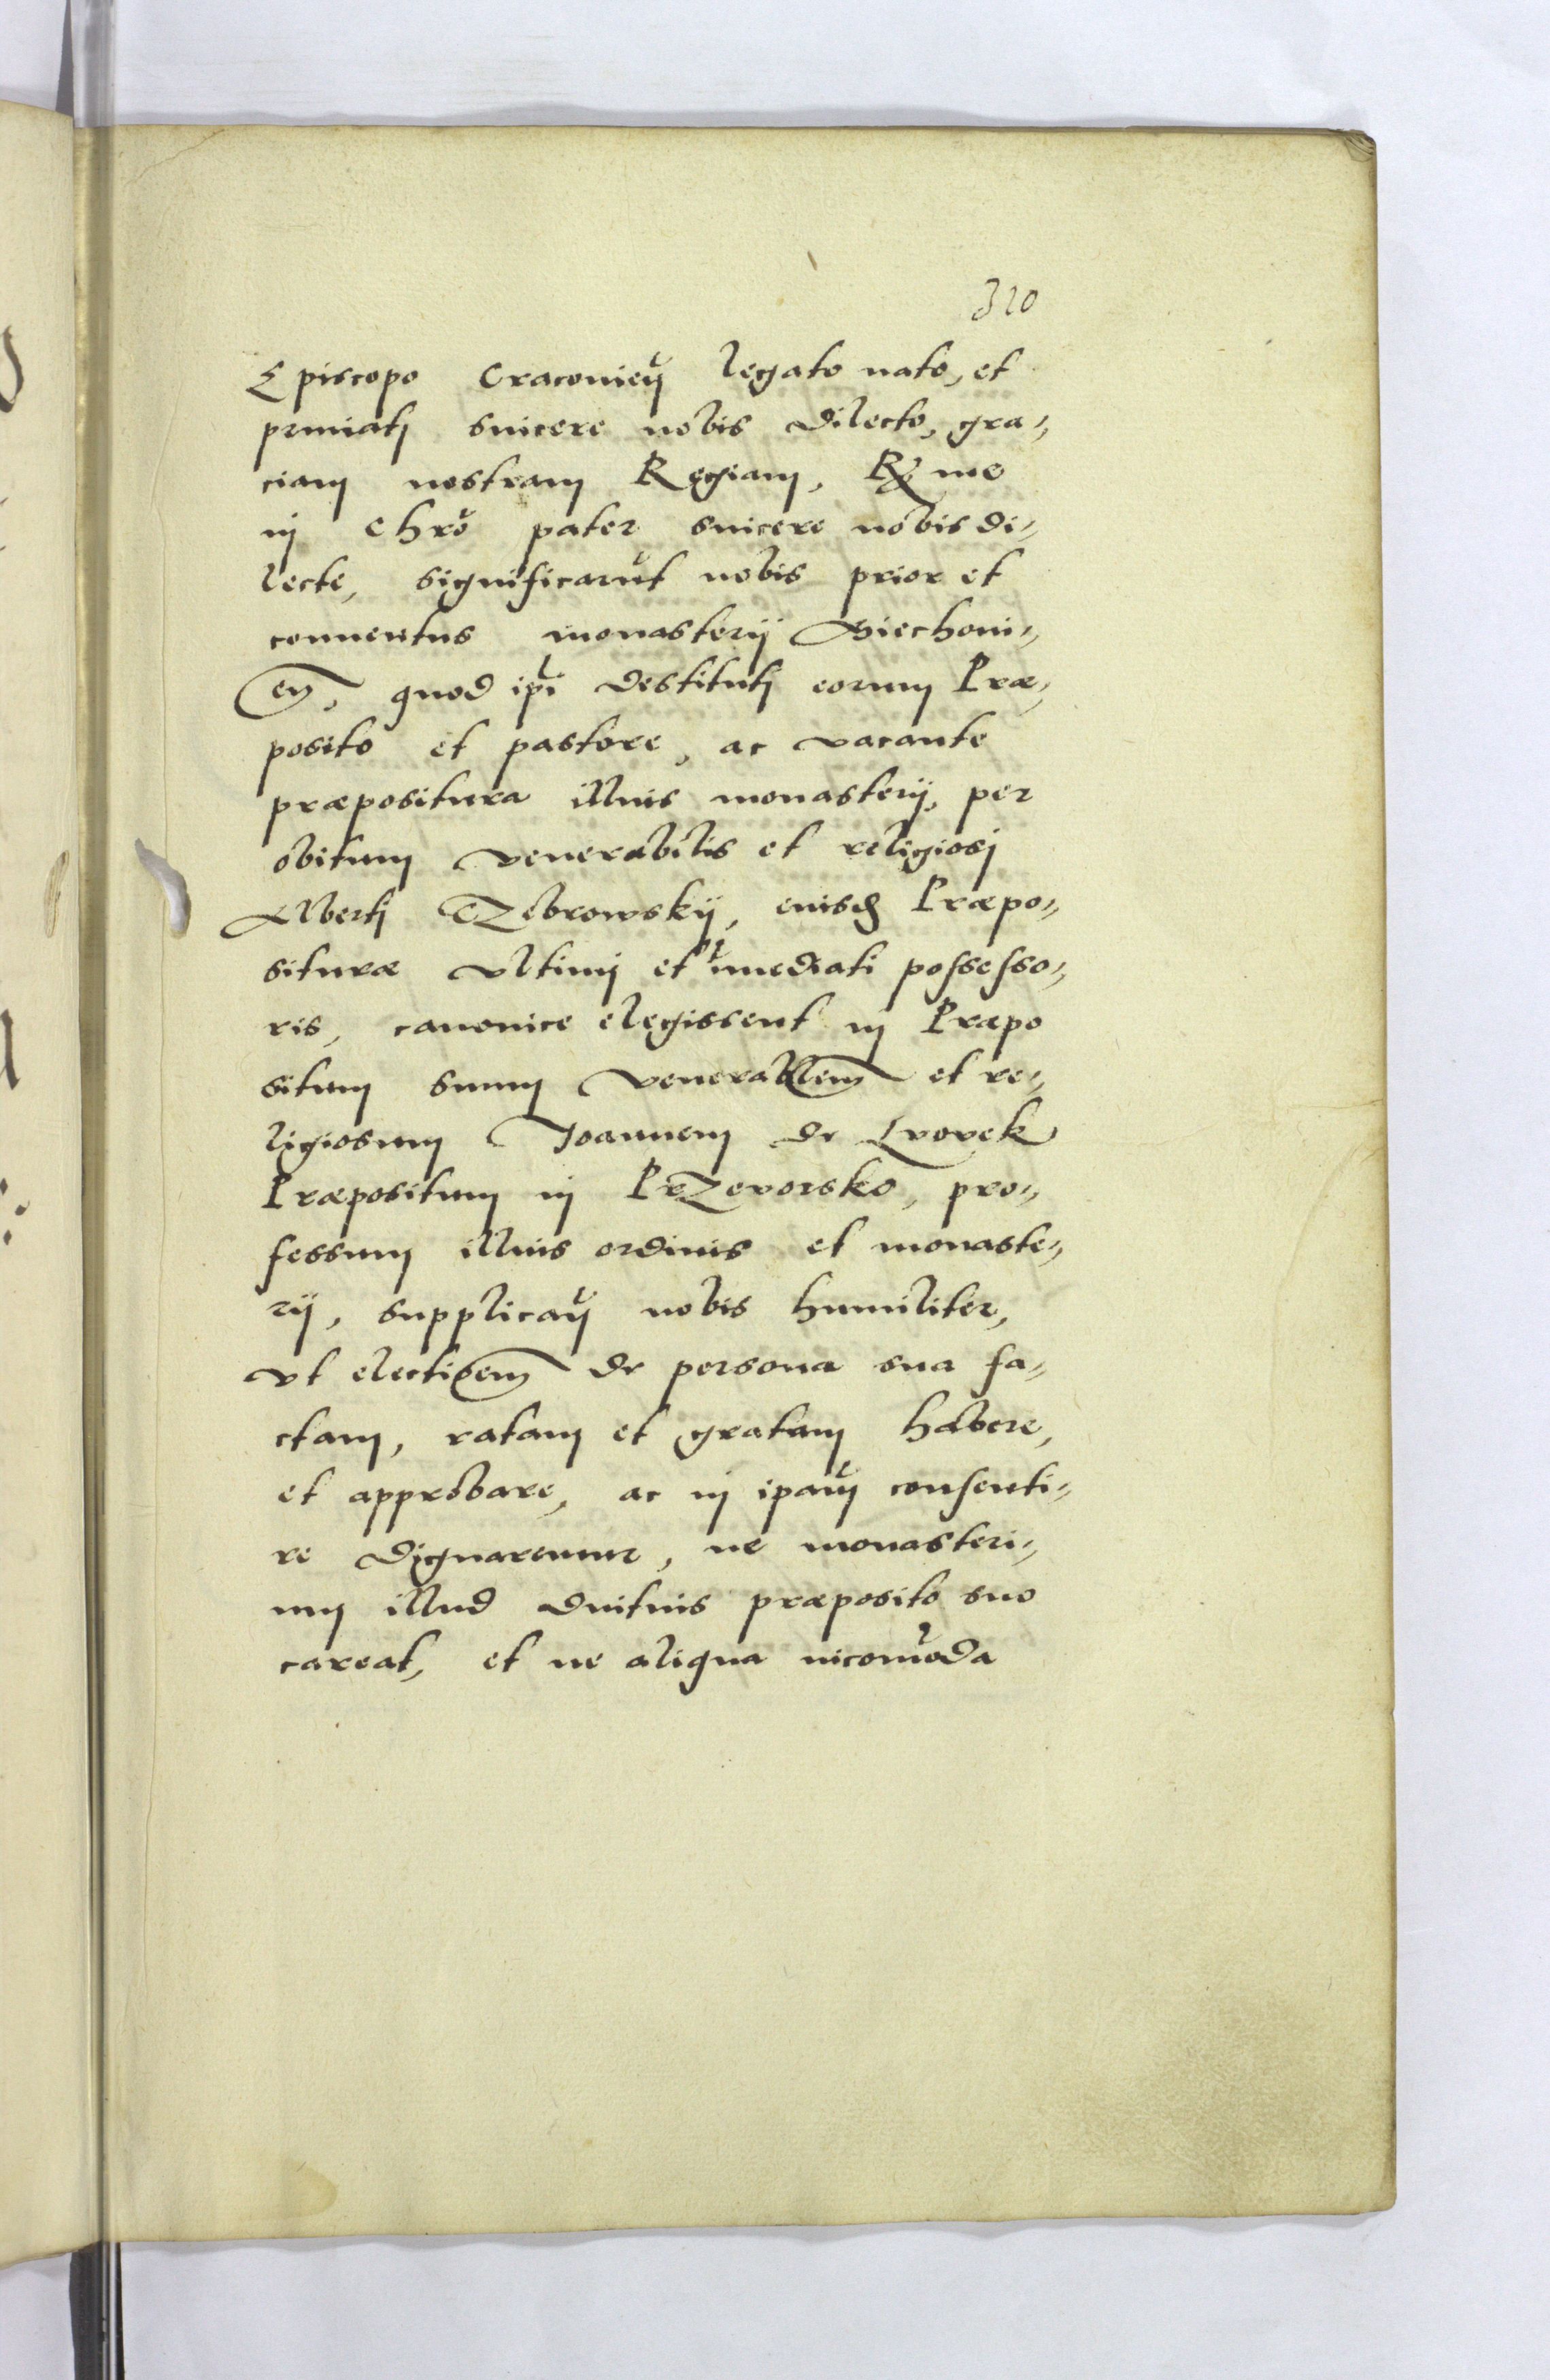 320
Episcopo Cracovieñ legato nato, et
primati sincere nobis dilecto, gra-
ciam nostram Regiam, Rx̃me
in Chrõ pater sincere nobis di-
lecte, significarũt nobis prior et
conuentus monasterij Miechoui-
eñ, quod ip̃i destituti eorum Præ-
posito et pastore, ac vacante
præpositura illius monasterij, per
obitum venerabilis et religiosi
Alberti Zebrowskij, eiusd̃ Præpo-
situræ vltimi et im̃ediati possesso-
ris, canonice elegissent in Præpo
situm suum venerabl̃em et re-
ligiosum Joannem de
Præpositum in PrZevorsko, pro-
fessum illius ordinis et monaste-
rij, supplicañ nobis humiliter,
vt electiõem de persona sua fa-
ctam, ratam et gratam habere,
et approbare, ac in ip̃am consenti-
re dignaremur, ne monasteri-
um illud diutius præposito suo
careat, et ne aliqua incom̃oda